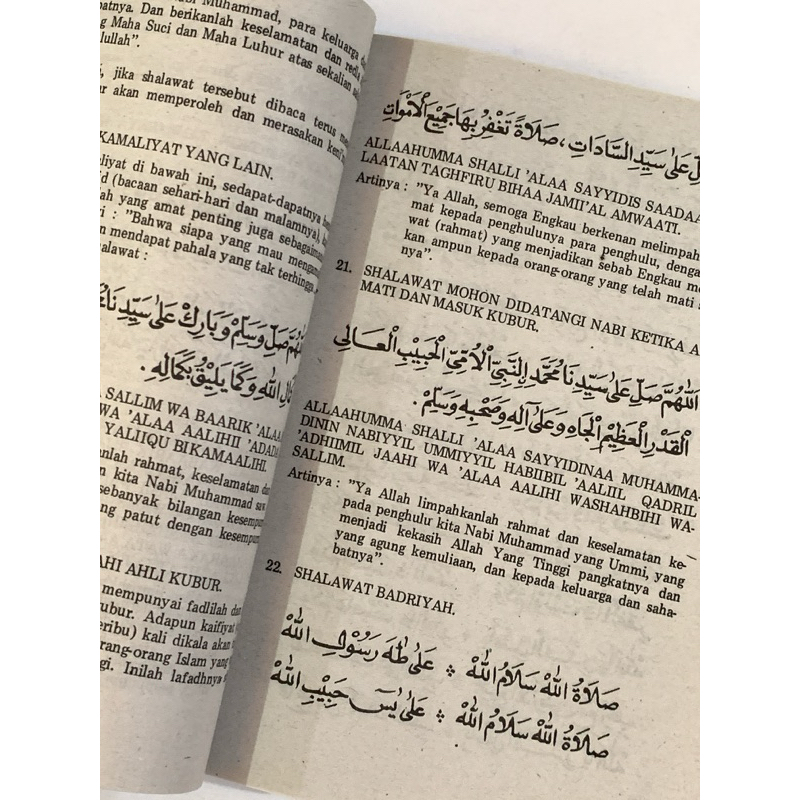 Nabi Muhammad, para keluarga
Dan berikanlah keselamatan dan
Maha Suci dan Maha Luhur atas sekalian
jika shalawat tersebut dibaca terus
akan memperoleh dan merasakan
KAMALIYAT YANG LAIN.
di bawah ini, sedapat-dapatnya
(bacaan sehari-hari dan malamnya),
yang amat penting juga sebagaimana
: "Bahwa siapa yang mau
mendapat pahala yang tak terhingga."
صَلِّ وَسَلِّمْ وَبَارِكْ عَلَى سَيِّدِنَا
اللهِ وَكَمَا يَلِيْقُ بِكَمَالِهِ .
SALLIM WA BAARIK 'ALAA
'ALAA AALIHII 'ADADA
YALIIQU BIKAMAALIHI.
rahmat, keselamatan
kita Nabi Muhammad saw
sebanyak bilangan
patut dengan
AHLI KUBUR.
mempunyai fadlilah dan
Adapun kaifiyat
kali dikala akan
orang-orang Islam yang
Inilah lafadhnya
عَلَى سَيِّدِ السَّادَاتِ ، صَلَاةً تَغْفِرُ بِهَا جَمِيْعَ الْاَمْوَاتِ
ALLAAHUMMA SHALLI 'ALAA SAYYIDIS
LAATAN TAGHFIRU BIHAA JAMII'AL AMWAATI.
Artinya : "Ya Allah, semoga Engkau berkenan
mat kepada penghulunya para penghulu,
wat (rahmat) yang menjadikan sebab Engkau
kan ampun kepada orang-orang yang telah mati
nya".
21. SHALAWAT MOHON DIDATANGI NABI KETIKA
MATI DAN MASUK KUBUR.
اَللّٰهُمَّ صَلِّ عَلَى سَيِّدِنَا مُحَمَّدٍ النَّبِيِّ الْاُمِّيِّ الْحَبِيْبِ الْعَالِى
الْقَدْرِ الْعَظِيْمِ الْجَاهِ وَعَلَى اٰلِهِ وَصَحْبِهِ وَسَلِّمْ .
ALLAAHUMMA SHALLI 'ALAA SAYYIDINAA MUHAMMA-
DININ NABIYYIL UMMIYYIL HABIIBIL 'AALIL QADRIL
'ADHIIMIL JAAHI WA 'ALAA AALIHI WASHAHBIHI WA-
SALLIM.
Artinya : "Ya Allah limpahkanlah rahmat dan keselamatan ke-
pada penghulur kita Nabi Muhammad yang Ummi, yang
menjadi kekasih Allah Yang Tinggi pangkatnya dan
yang agung kemuliaan, dan kepada keluarga dan saha-
batnya".
22. SHALAWAT BADRIYAH.
صَلَاةُ اللهِ سَلَامُ اللهِ ؞ عَلَى طٰهَ رَسُوْلِ اللهِ
صَلَاةُ اللهِ سَلَامُ اللهِ ؞ عَلَى يٰسٓ حَبِيْبِ اللهِ